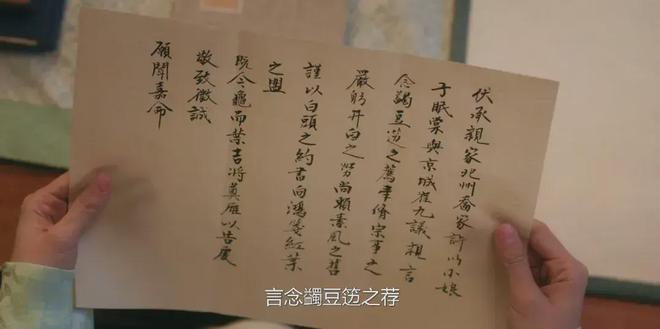 伏承親家州喬家許以小娘
子眠棠與京城崔九議親言
念蠲豆笾之薦聿脩宗事之
嚴躬井臼之勞尚賴素風之舊
謹以白頭之約書向鴻箋紅葉
之盟
既令龜而葉吉將奠雁以告虔
敬致微誠
願聞嘉命
言念蠲豆笾之荐